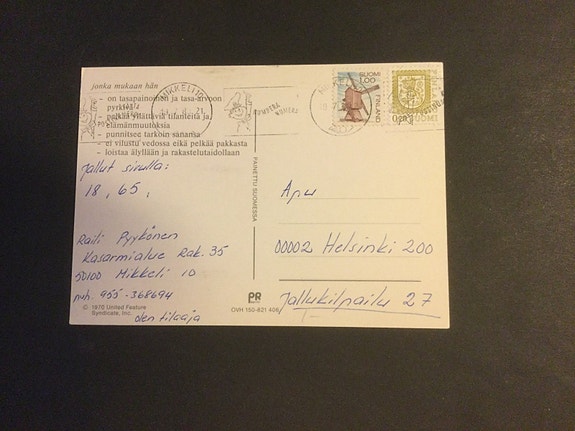 jonka mukaan hän
- on tasapainoinen ja tasa-arvoon
pyrkivä
- pelkää yllättäviä tilanteita ja
elämänmuutoksia
- punnitsee tarkoin sanansa
- ei vilustu vedossa eikä pelkää pakkasta
- loistaa älyllään ja rakastelutaidollaan
MIKKELI
21
POSTINUMERO
SUOMI
1,00
FINLAND
0,20 SUOMI
Jallut sivulla:
18, 65,
Raili Pyykönen
Kasarmialue Rak. 35
50100 Mikkeli 10
puh. 955-368694
olen tilaaja
© 1970 United Feature
Syndicate, Inc.
PAINETTU SUOMESSA
PR
OVH 150-821 406
Apu
00002 Helsinki 200
Jallukilpailu 27